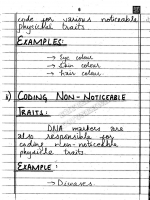 code for various noticeable
physical traits.
EXAMPLES:
→ Eye colour
→ Skin colour
→ Hair colour
CODING NON-NOTICEABLE
TRAITS:
DNA markers are
also responsible for
coding non-noticeable
physical traits
EXAMPLE:
→ Diseases.